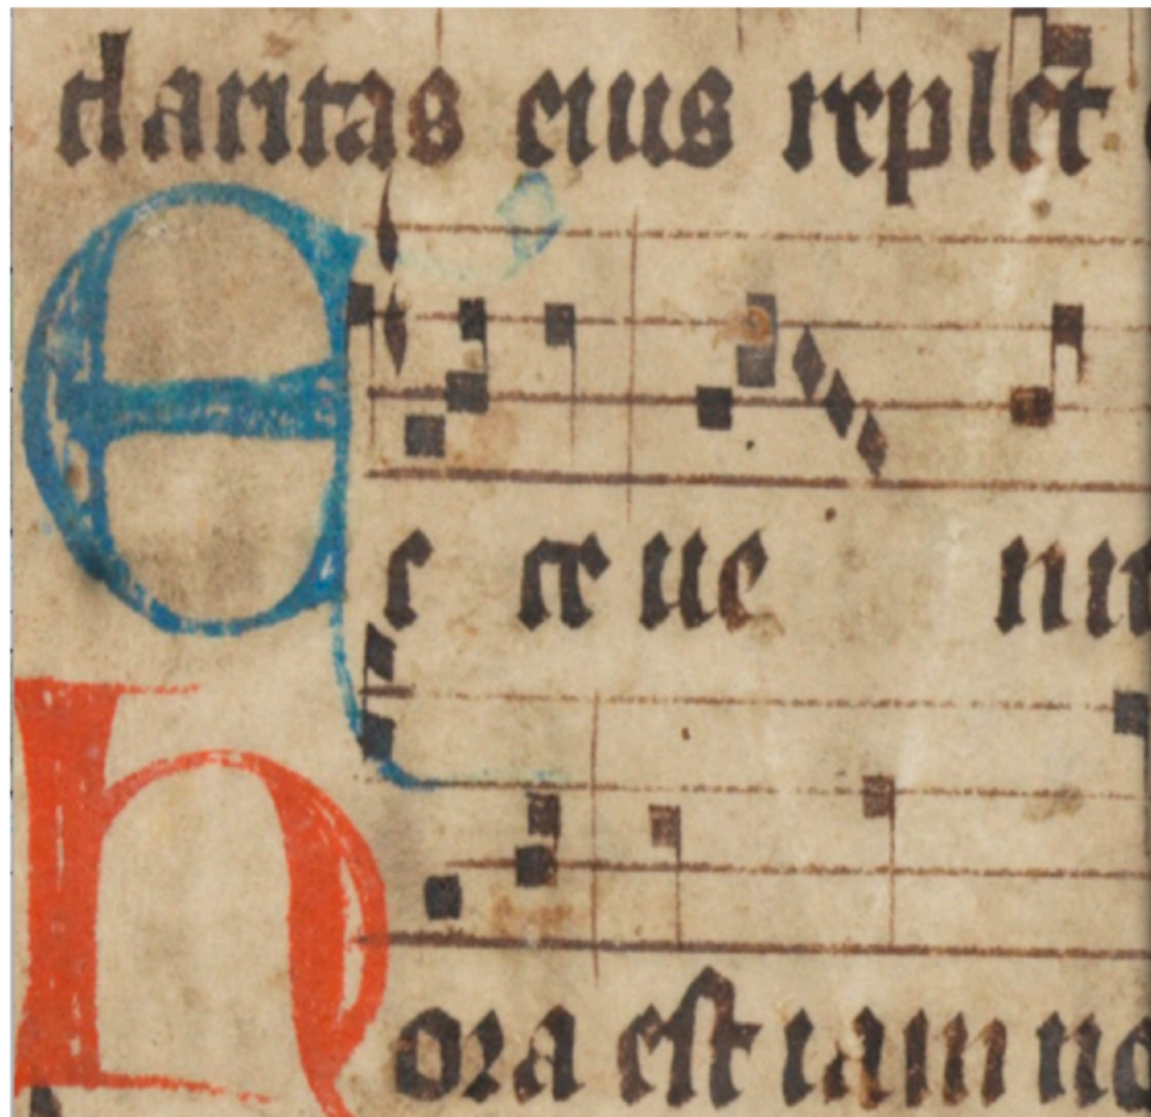 claritas eius replet
Ec ce ue ni
hora est iam no